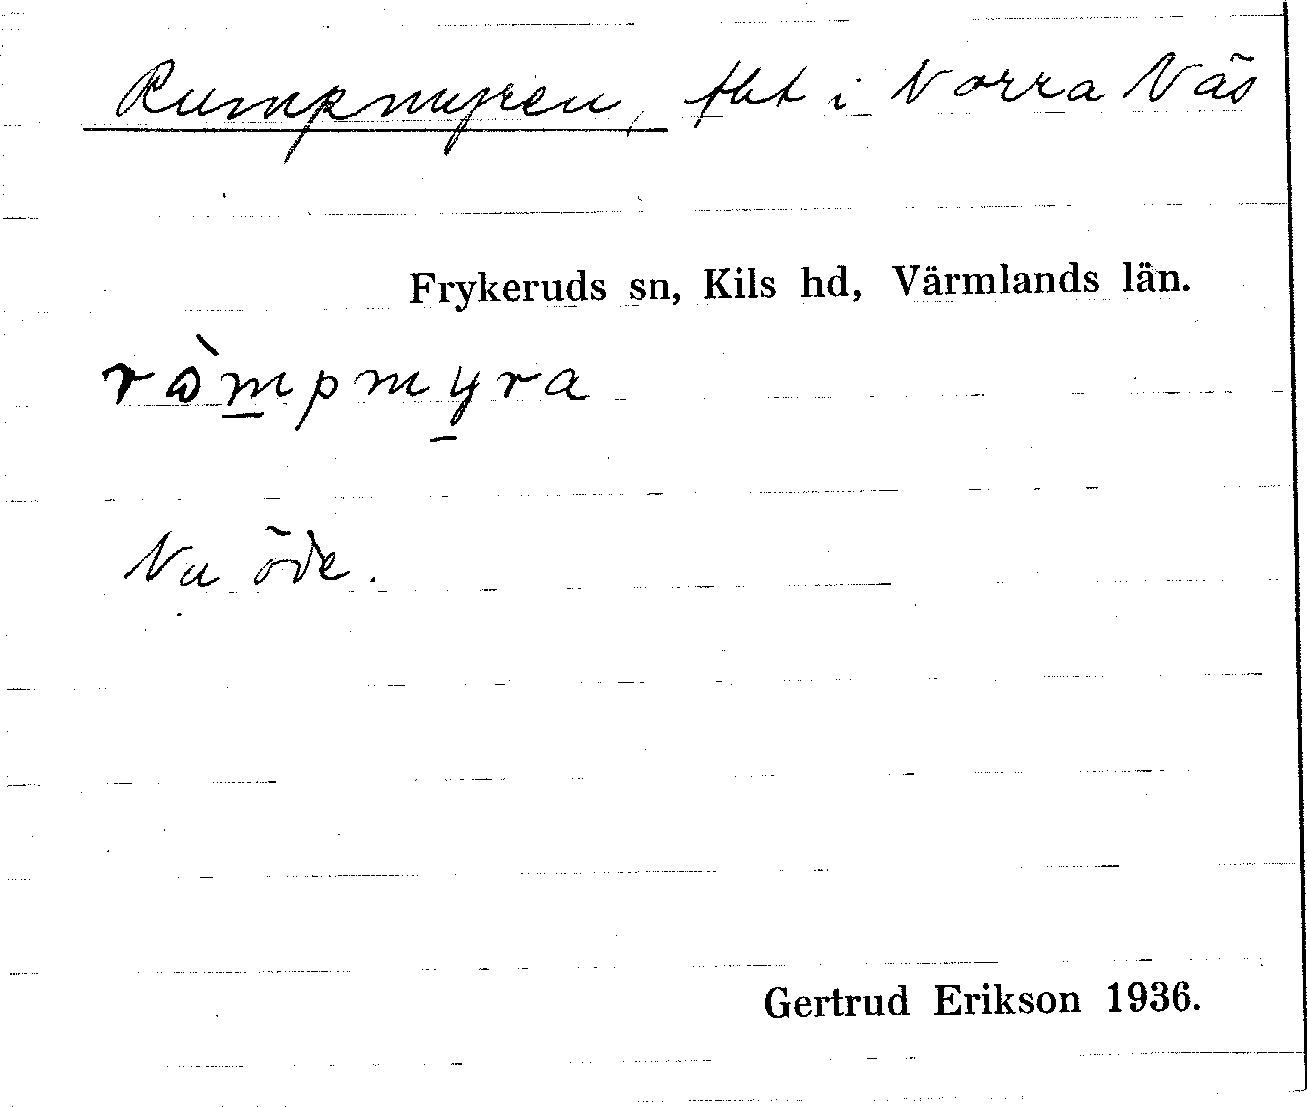 Rumpmyren, tht i Norra Näs
Frykeruds sn, Kils hd, Värmlands län.
ròmpmyra
Nu öde.
Gertrud Erikson 1936.